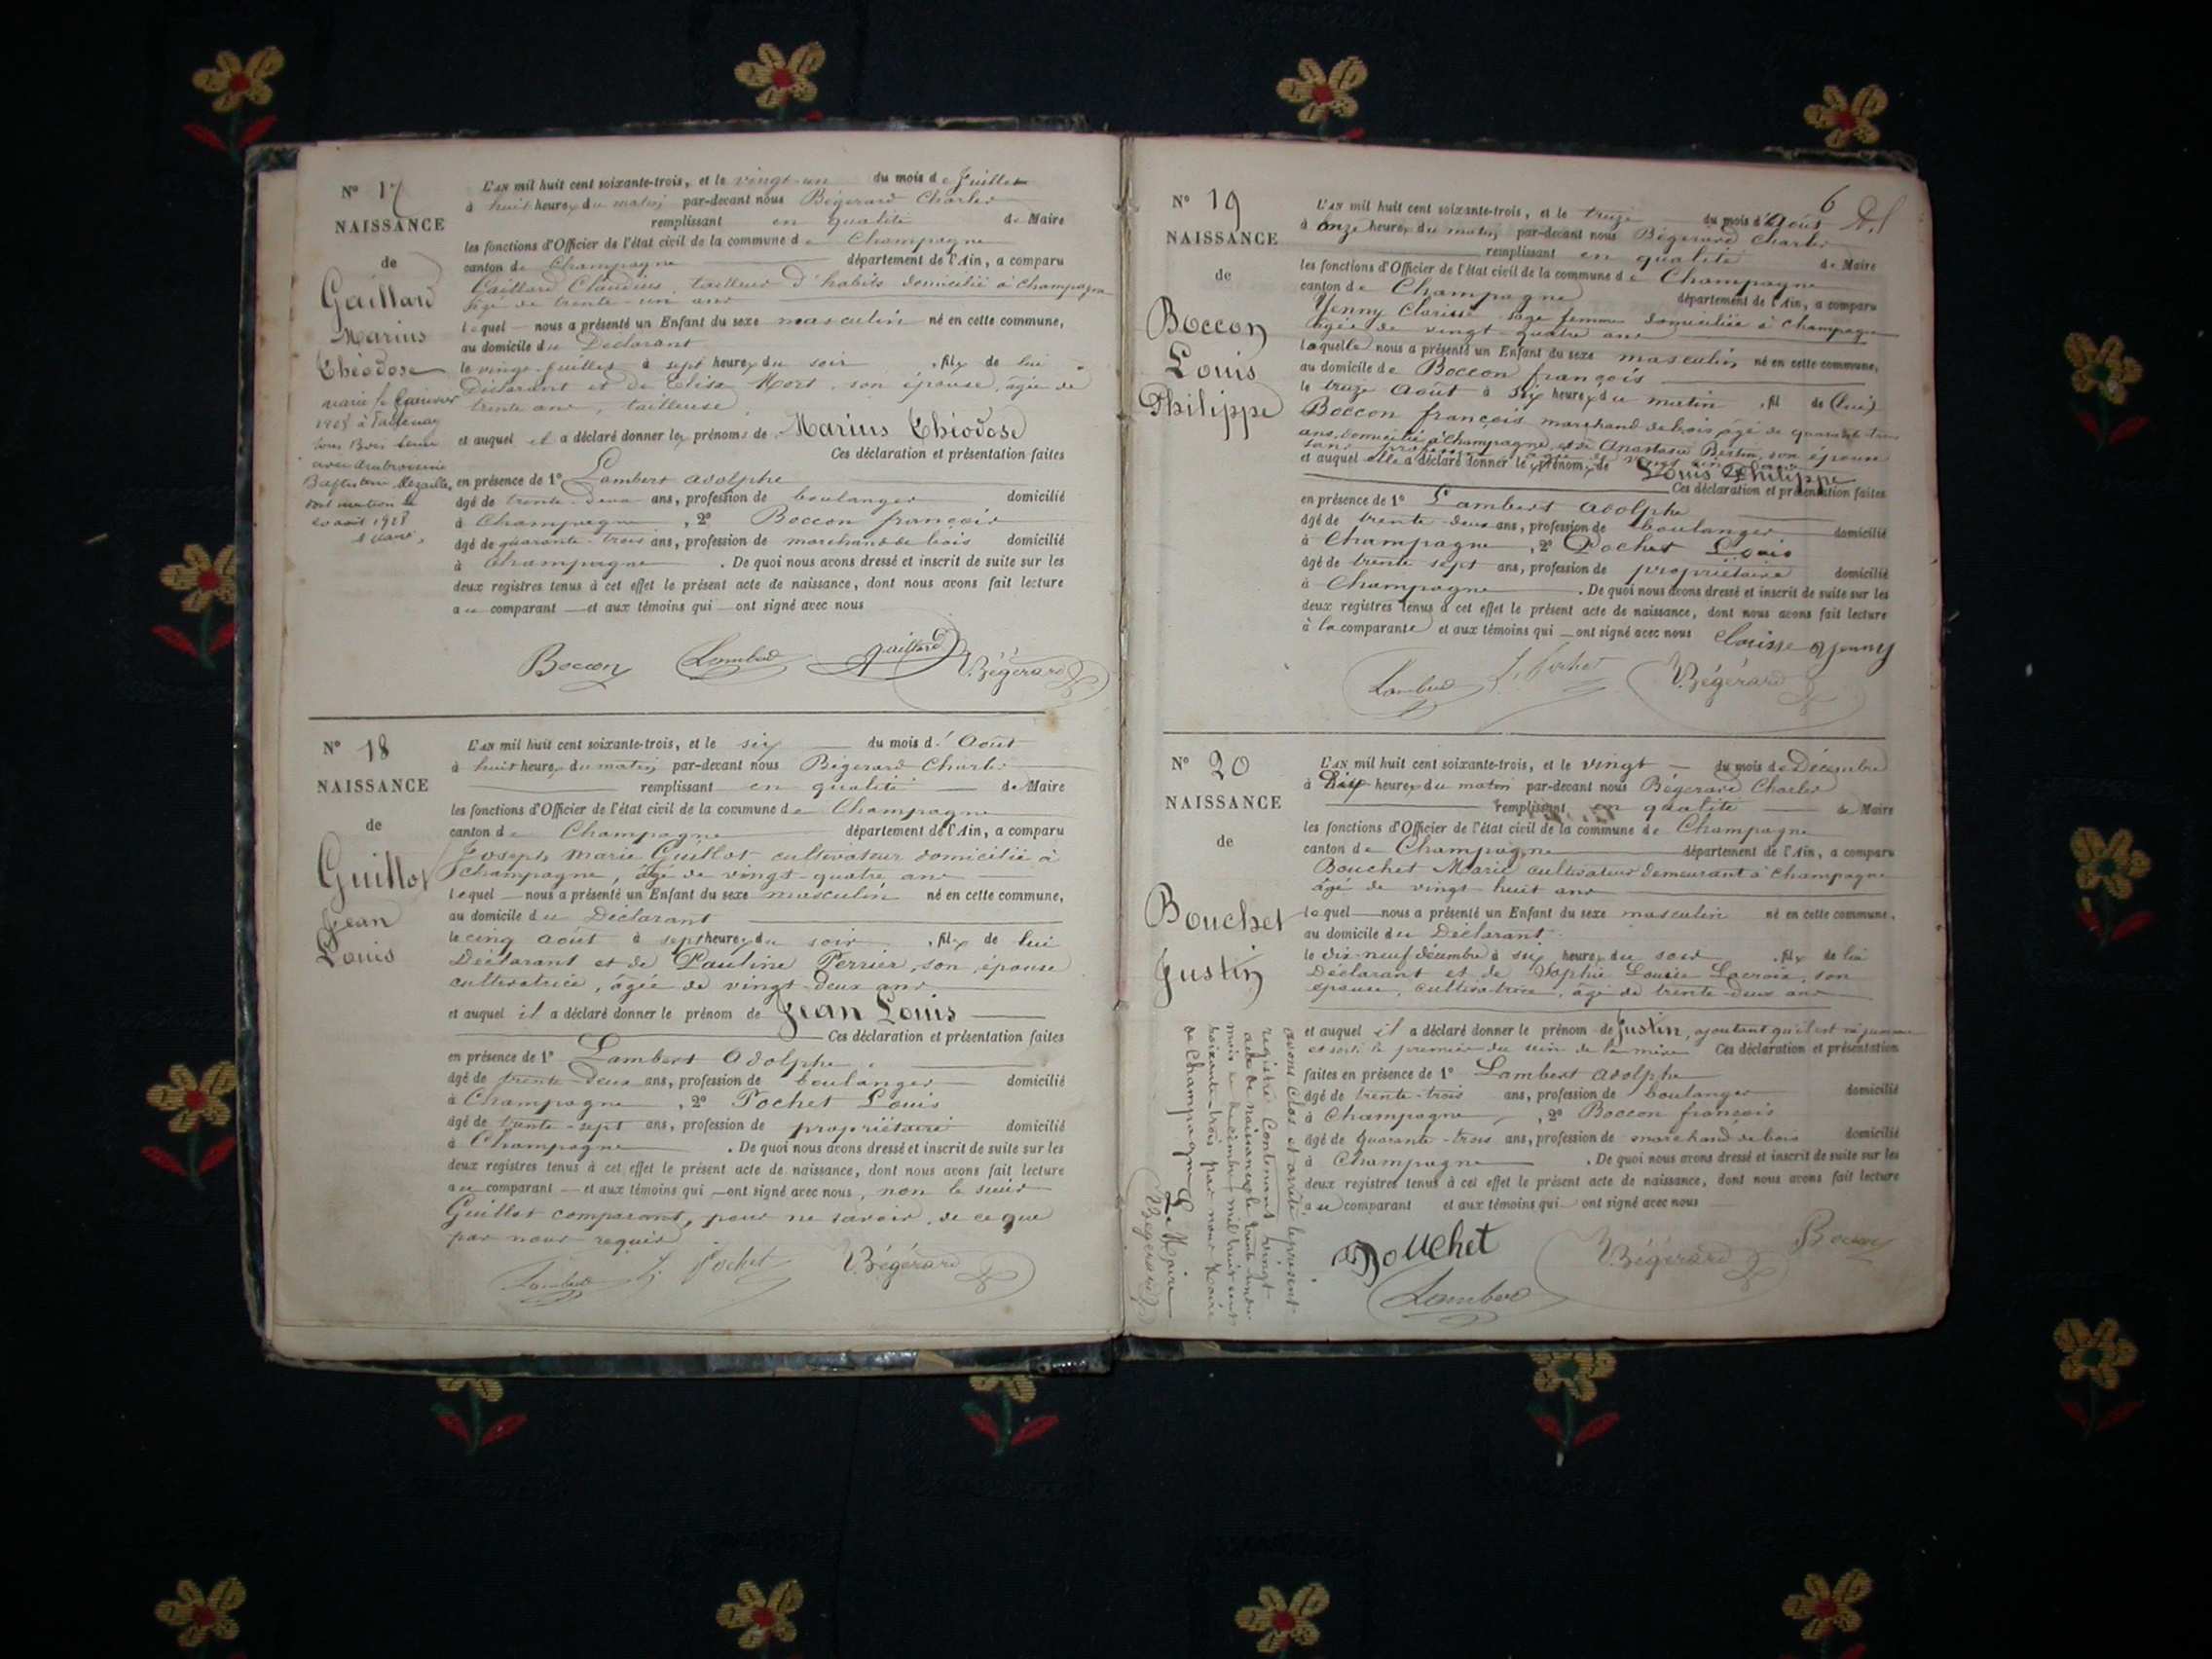 N° 17
NAISSANCE
de
Gaillard
Marius
Théodose
L'AN mil huit cent soixante-trois, et le vingt-un du mois de Juillet
à huit heures du matin par-devant nous Bégerard Charles
remplissant en qualité de Maire
les fonctions d'Officier de l'état civil de la commune de Champagne
canton de Champagne département de l'Ain, a comparu
Gaillard Claudius, tailleur d'habits domicilié à Champagne
âgé de trente-un ans
lequel nous a présenté un Enfant du sexe masculin né en cette commune,
au domicile du Déclarant
le vingt juillet à sept heures du soir, fils de lui
Déclarant et de Elisa Mort, son épouse, âgée de
trente ans, tailleuse
et auquel il a déclaré donner les prénoms de Marius Théodose
Ces déclaration et présentation faites
en présence de 1° Lambert Adolphe
âgé de trente-deux ans, profession de boulanger domicilié
à Champagne, 2° Boccon françois
âgé de quarante-trois ans, profession de marchand de bois domicilié
à Champagne. De quoi nous avons dressé et inscrit de suite sur les
deux registres tenus à cet effet le présent acte de naissance, dont nous avons fait lecture
au comparant et aux témoins qui ont signé avec nous
Boccon Lambert Gaillard Bégérard
N° 18
NAISSANCE
de
Guillot
Jean
Louis
L'AN mil huit cent soixante-trois, et le six du mois d'Août
à huit heures du matin par-devant nous Bégerard Charles
remplissant en qualité de Maire
les fonctions d'Officier de l'état civil de la commune de Champagne
canton de Champagne département de l'Ain, a comparu
Joseph Marie Guillot cultivateur domicilié à
Champagne, âgé de vingt-quatre ans
lequel nous a présenté un Enfant du sexe masculin né en cette commune,
au domicile du Déclarant
le cinq août à sept heures du soir, fils de lui
Déclarant et de Pauline Perrier, son épouse
cultivatrice, âgée de vingt-deux ans
et auquel il a déclaré donner le prénom de Jean Louis
Ces déclaration et présentation faites
en présence de 1° Lambert Adolphe
âgé de trente-deux ans, profession de boulanger domicilié
à Champagne, 2° Pochet Louis
âgé de trente-sept ans, profession de propriétaire domicilié
à Champagne. De quoi nous avons dressé et inscrit de suite sur les
deux registres tenus à cet effet le présent acte de naissance, dont nous avons fait lecture
au comparant et aux témoins qui ont signé avec nous, non le
Guillot comparant, pour ne savoir, de ce que
par nous requis
Lambert L. Pochet Bégérard
6
N° 19
NAISSANCE
de
Boccon
Louis
Philippe
L'AN mil huit cent soixante-trois, et le treize du mois d'Août
à onze heures du matin par-devant nous Bégerard Charles
remplissant en qualité de Maire
les fonctions d'Officier de l'état civil de la commune de Champagne
canton de Champagne département de l'Ain, a comparu
Yenny Clarisse sage femme domiciliée à Champagne
âgée de vingt-quatre ans
laquelle nous a présenté un Enfant du sexe masculin né en cette commune,
au domicile de Boccon françois
le treize Août à six heures du matin, fil de (lui)
Boccon françois marchand de bois âgé de quarante-trois
ans, domicilié à Champagne, et de Anastasie Bertin, son épouse
et auquel elle a déclaré donner les prénoms de Louis Philippe
Ces déclaration et présentation faites
en présence de 1° Lambert Adolphe
âgé de trente-deux ans, profession de boulanger domicilié
à Champagne, 2° Pochet Louis
âgé de trente sept ans, profession de propriétaire domicilié
à Champagne. De quoi nous avons dressé et inscrit de suite sur les
deux registres tenus à cet effet le présent acte de naissance, dont nous avons fait lecture
à la comparante et aux témoins qui ont signé avec nous Clarisse Yenny
Lambert L. Pochet Bégérard
N° 20
NAISSANCE
de
Bouchet
Justin
L'AN mil huit cent soixante-trois, et le vingt du mois de Décembre
à dix heures du matin par-devant nous Bégerard Charles
remplissant en qualité de Maire
les fonctions d'Officier de l'état civil de la commune de Champagne
canton de Champagne département de l'Ain, a comparu
Bouchet Marie cultivateur demeurant à Champagne
âgé de vingt huit ans
lequel nous a présenté un Enfant du sexe masculin né en cette commune,
au domicile du Déclarant
le dix-neuf décembre à six heures du soir, fils de lui
Déclarant et de Sophie Louise Lacroix, son
épouse, cultivatrice, âgé de trente-deux ans
et auquel il a déclaré donner le prénom de Justin, ajoutant qu'il est né jumeau
et sorti le premier du sein de la mère Ces déclaration et présentation
faites en présence de 1° Lambert Adolphe
âgé de trente-trois ans, profession de boulanger domicilié
à Champagne, 2° Boccon françois
âgé de quarante-trois ans, profession de marchand de bois domicilié
à Champagne. De quoi nous avons dressé et inscrit de suite sur les
deux registres tenus à cet effet le présent acte de naissance, dont nous avons fait lecture
au comparant et aux témoins qui ont signé avec nous
Bouchet Bégérard Boccon
Lambert
avons clos et arrêté le présent
registre contenant vingt
acte de naissance, le trente un du
mois de décembre mil huit cent
soixante-trois par nous Maire
de Champagne
Le Maire
Bégérard